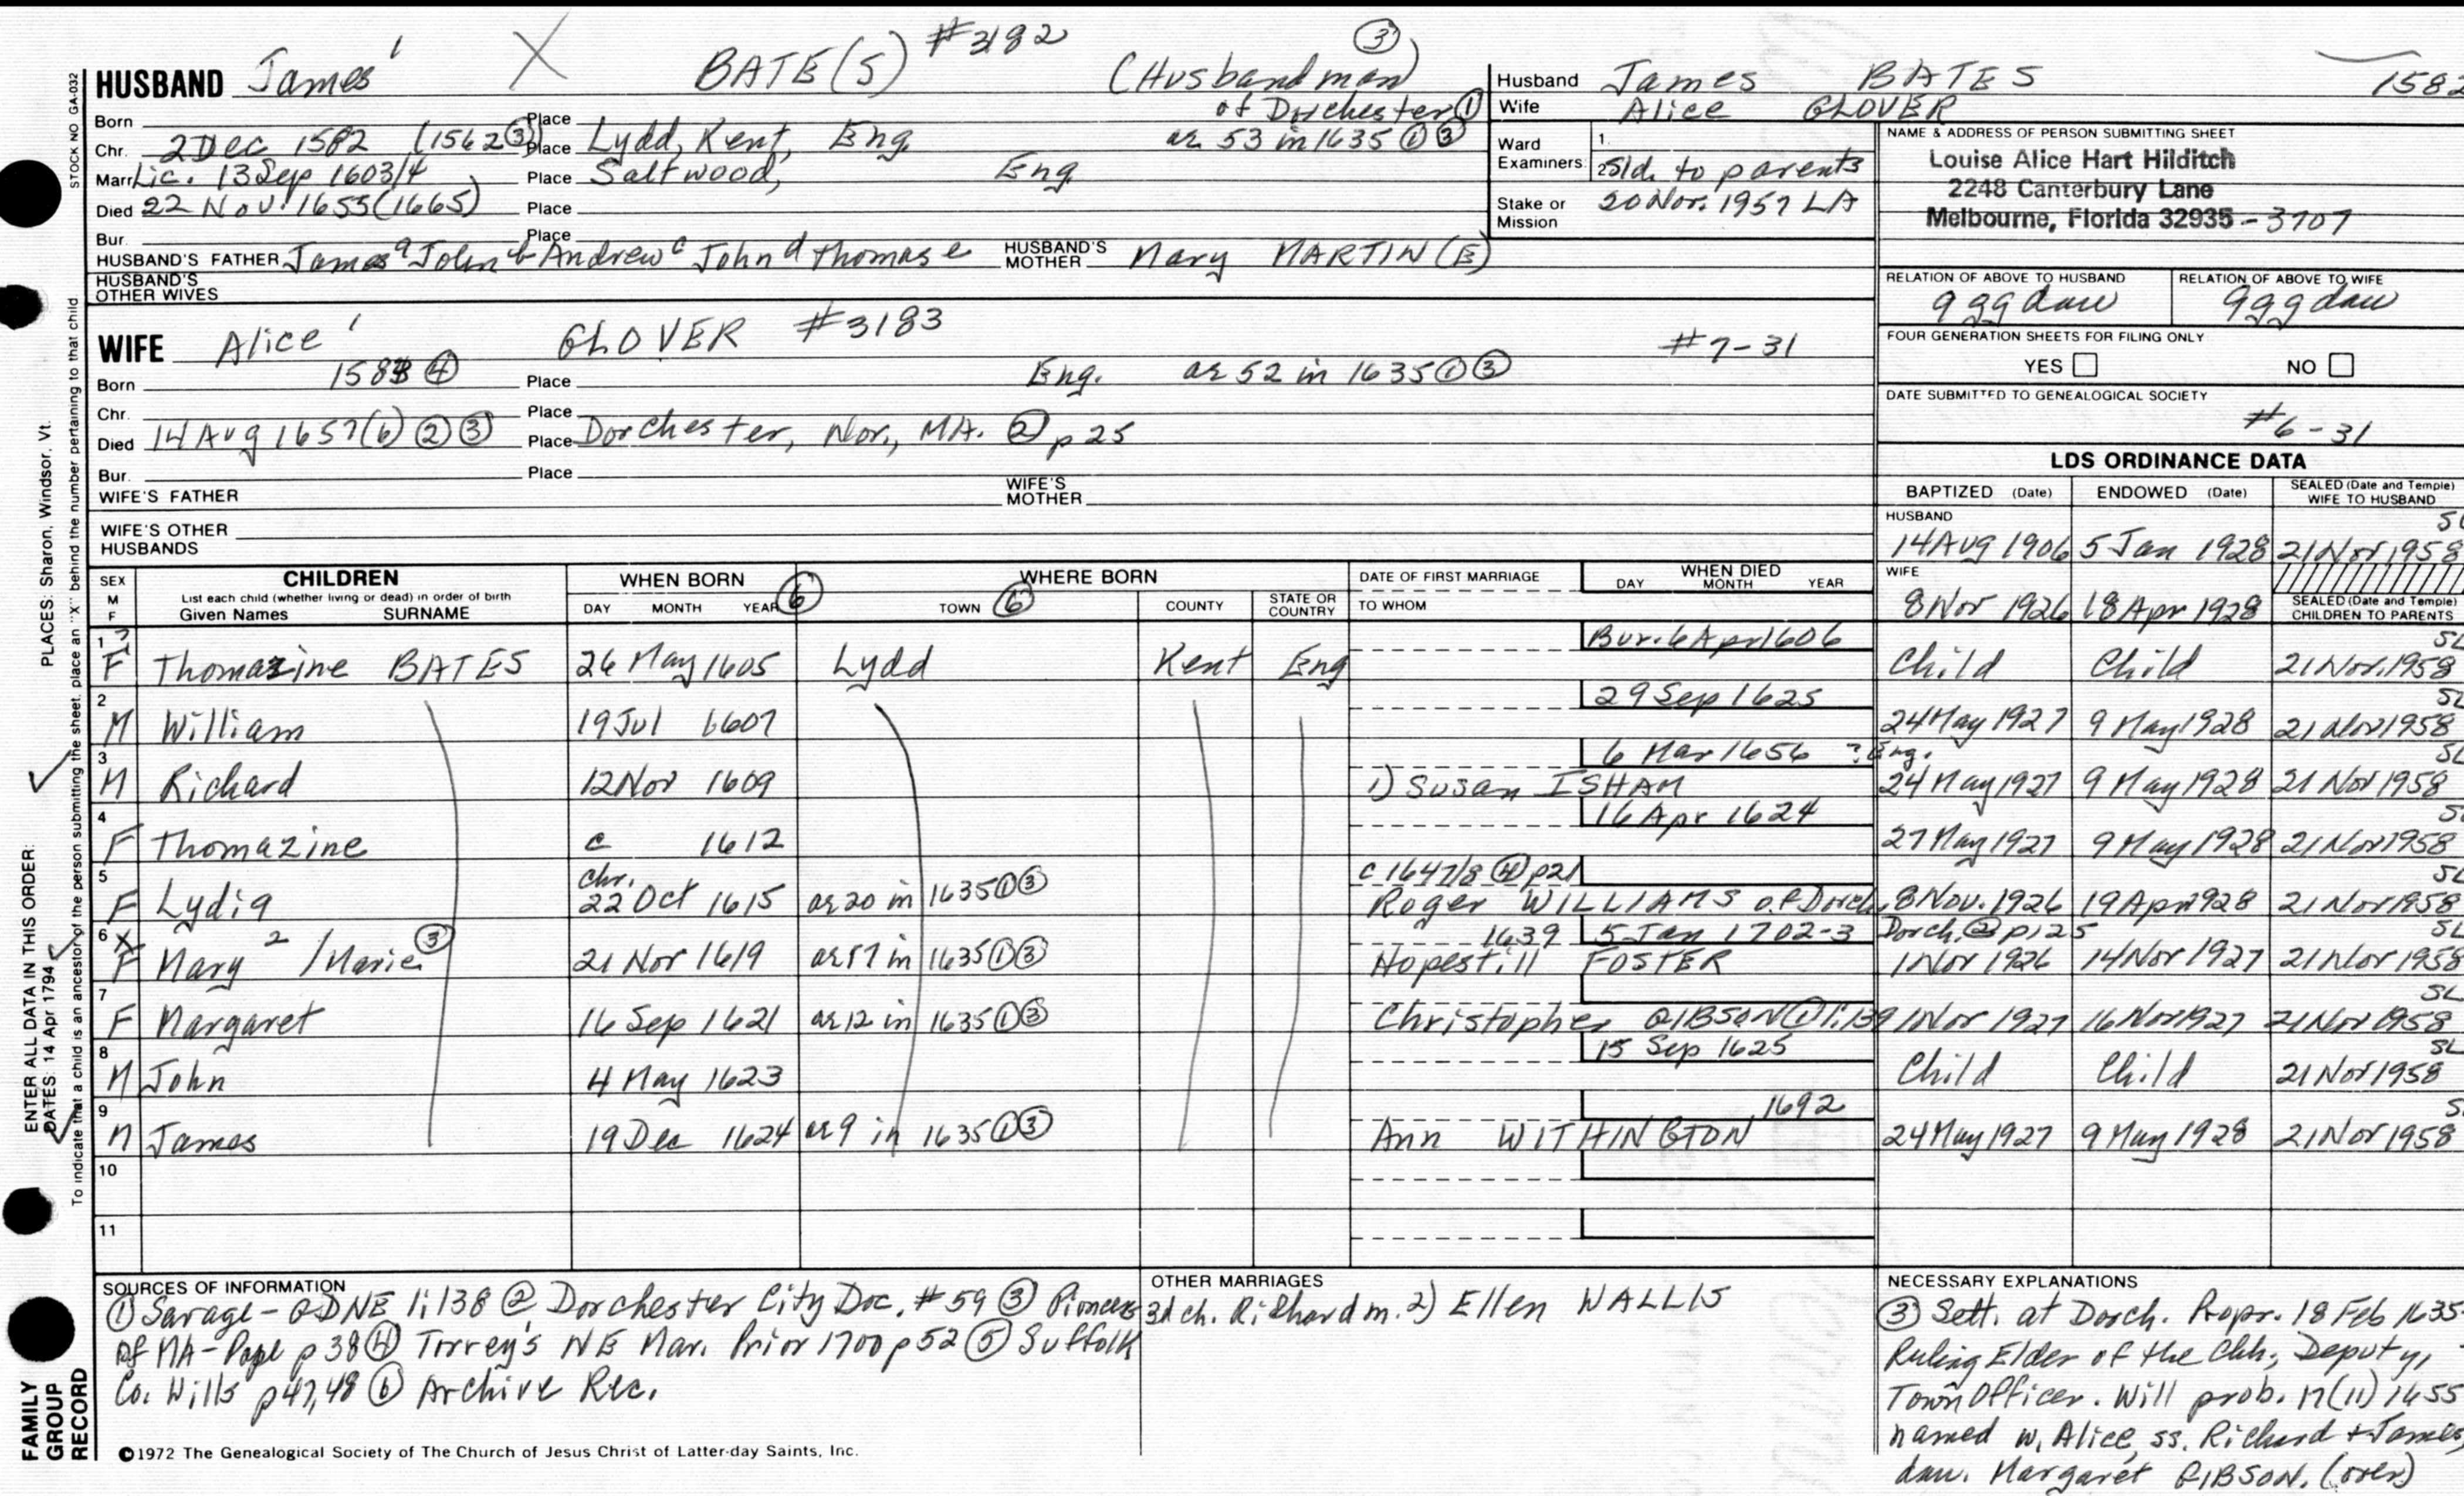 HUSBAND James 1 X BATE(S) #3182 (Husbandman) ③
of Dorchester ①
Born Place
Chr. 2 Dec 1582 (1562 ③) Place Lydd, Kent, Eng ae 53 in 1635 ① ③
Marr Lic. 13 Sep 1603/4 Place Saltwood, Eng
Died 22 Nov. 1655 (1665) Place
Bur. Place
HUSBAND'S FATHER James a John b Andrew c John d Thomas e HUSBAND'S MOTHER Mary MARTIN(E)
HUSBAND'S OTHER WIVES
WIFE Alice 1 GLOVER #3183 #7-31
Born 1583 ④ Place Eng. ae 52 in 1635 ① ③
Chr. Place
Died 14 Aug 1657 (6) ② ③ Place Dorchester, Nor., MA. ② p 25
Bur. Place
WIFE'S FATHER WIFE'S MOTHER
WIFE'S OTHER HUSBANDS
Husband James BATES 1582
Wife Alice GLOVER
Ward Examiners: 1. 2. Sld. to parents
Stake or Mission 20 Nov. 1957 LA
NAME & ADDRESS OF PERSON SUBMITTING SHEET
Louise Alice Hart Hilditch
2248 Canterbury Lane
Melbourne, Florida 32935-3707
RELATION OF ABOVE TO HUSBAND RELATION OF ABOVE TO WIFE
ggg dau ggg dau
FOUR GENERATION SHEETS FOR FILING ONLY
YES NO
DATE SUBMITTED TO GENEALOGICAL SOCIETY
#6-31
LDS ORDINANCE DATA
BAPTIZED (Date) ENDOWED (Date) SEALED (Date and Temple) WIFE TO HUSBAND
HUSBAND
14 Aug 1906 5 Jan 1928 21 Nov 1958
WIFE
8 Nov 1926 18 Apr 1928 SEALED (Date and Temple) CHILDREN TO PARENTS
SEX M F CHILDREN WHEN BORN ⑥ WHERE BORN DATE OF FIRST MARRIAGE WHEN DIED
List each child (whether living or dead) in order of birth
Given Names SURNAME DAY MONTH YEAR TOWN ⑥ COUNTY STATE OR COUNTRY TO WHOM DAY MONTH YEAR
1 ? Bur. 6 Apr 1606 SL
F Thomazine BATES 26 May 1605 Lydd Kent Eng Child Child 21 Nov. 1958
2 29 Sep 1625 SL
M William 19 Jul 1607 24 May 1927 9 May 1928 21 Nov 1958
3 6 Mar 1656 ? Eng. SL
M Richard 12 Nov 1609 1) Susan ISHAM 24 May 1927 9 May 1928 21 Nov 1958
4 16 Apr 1624
F Thomazine c 1612 27 May 1927 9 May 1928 21 Nov 1958
5 chr. c 1647/8 ④ p21 SL
F Lydia 22 Oct 1615 ae 20 in 1635 ① ③ Roger WILLIAMS of Dorch. 8 Nov. 1926 19 Apr 1928 21 Nov 1958
6 X 1639 5 Jan 1702-3 Dorch. ② p125 SL
F Mary 2 /Marie ③ 21 Nov 1619 ae 17 in 1635 ① ③ Hopestill FOSTER 1 Nov 1926 14 Nov 1927 21 Nov 1958
7 SL
F Margaret 16 Sep 1621 ae 12 in 1635 ① ③ Christopher GIBSON ① 1:139 1 Nov 1927 16 Nov 1927 21 Nov 1958
8 15 Sep 1625 SL
M John 4 May 1623 Child Child 21 Nov 1958
9 1692
M James 19 Dec 1624 ae 9 in 1635 ① ③ Ann WITHINGTON 24 May 1927 9 May 1928 21 Nov 1958
10
11
SOURCES OF INFORMATION
① Savage - GDNE 1:138 ② Dorchester City Doc. #59 ③ Pioneers
of MA - Pope p 38 ④ Torrey's NE Mar. Prior 1700 p 52 ⑤ Suffolk
Co. Wills p 47, 48 ⑥ Archive Rec.
OTHER MARRIAGES
3d ch. Richard m. 2) Ellen WALLIS
NECESSARY EXPLANATIONS
③ Sett. at Dorch. Propr. 18 Feb 1635-
Ruling Elder of the Chh; Deputy,
Town Officer. Will prob. 17 (11) 1655
named w. Alice, ss. Richard + James,
dau. Margaret GIBSON. (over)
©1972 The Genealogical Society of The Church of Jesus Christ of Latter-day Saints, Inc.
FAMILY GROUP RECORD
ENTER ALL DATA IN THIS ORDER:
DATES: 14 Apr 1794
PLACES: Sharon, Windsor, Vt.
To indicate that a child is an ancestor of the person submitting the sheet, place an "X" behind the number pertaining to that child.
STOCK NO GA-032